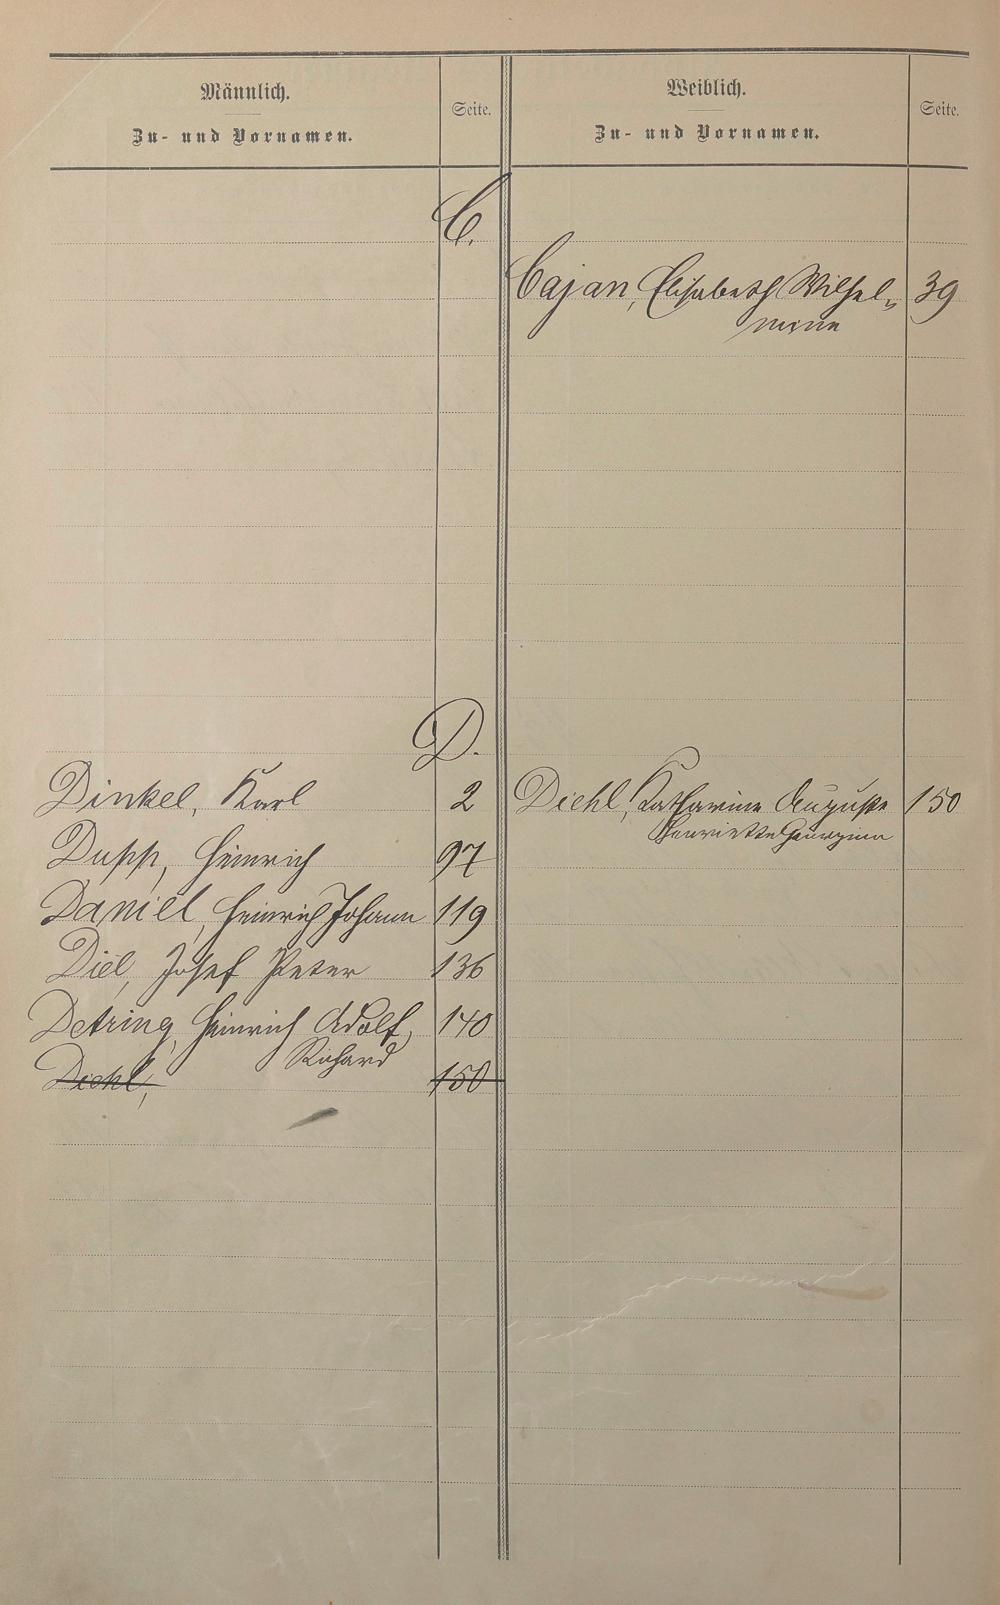 Männlich.
Zu- und Vornamen.
Seite.
Weiblich.
Zu- und Vornamen.
Seite.
C.
Cajan, Elisabeth Wilhel-
mine
39
D.
Dinkel, Karl 2
Dupp, Heinrich 97
Daniel, Heinrich Johann 119
Diel, Josef Peter 136
Detring, Heinrich Adolf, 140
Richard
Diehl, 150
Diehl, Katharine Auguste 150
Henriette Georgine